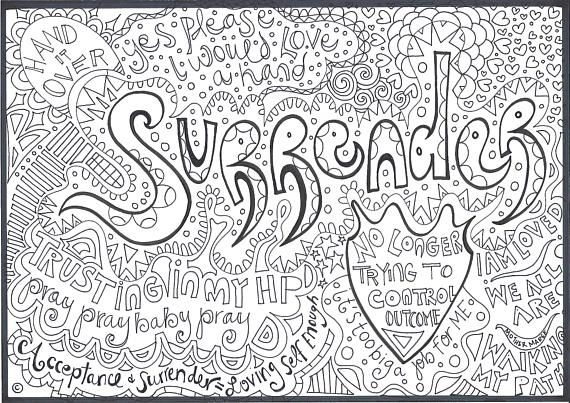 HAND
it
OVER
yes please
I would love
a hand
Surrender
NO LONGER
TRYING TO
CONTROL
OUTCOME
I AM LOVED
WE ALL
ARE
TRUSTING IN MY HP
pray pray baby pray
it's too big a job for ME
MOTHER MARSH
WALKIN
MY PATH
Acceptance & Surrender = Loving Self Enough
©